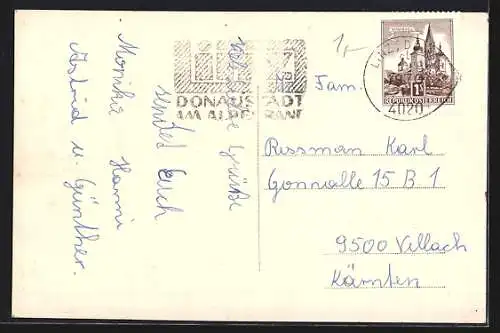 Herzliche Grüße
sendet Euch
Monika Hanni
Astrid u. Günther.
LINZ
DONAUSTADT
AM ALPENRAND
LINZ
4020
REPUBLIK ÖSTERREICH
1,-
Fam.
Rossman Karl
15 B 1
9500 Villach
Kärnten